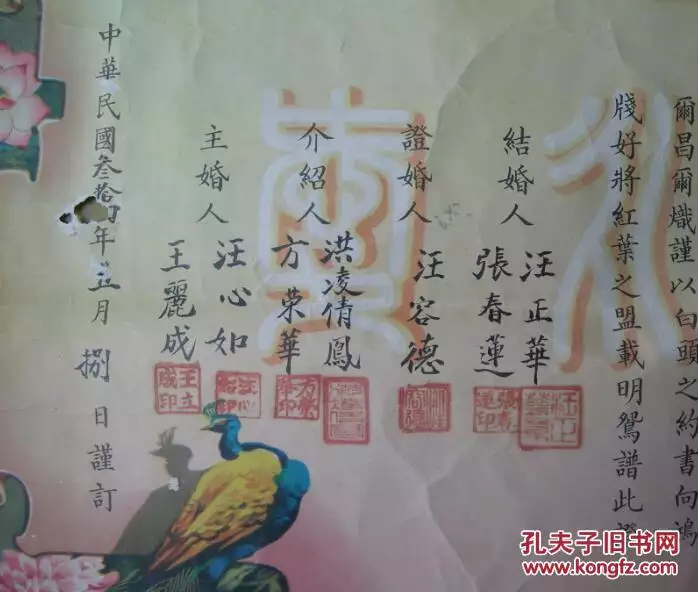 爾昌爾熾謹以白頭之約書向鴻
牋好將紅葉之盟載明鴛譜此證
結婚人 汪正華
張春蓮
證婚人 汪容德
介紹人 洪凌倩鳳
方荣華
主婚人 汪心如
王麗成
中華民國叁拾四年五月捌日謹訂
張春蓮印
方荣華印
汪心如印
王立成印
孔夫子旧书网
www.kongfz.com